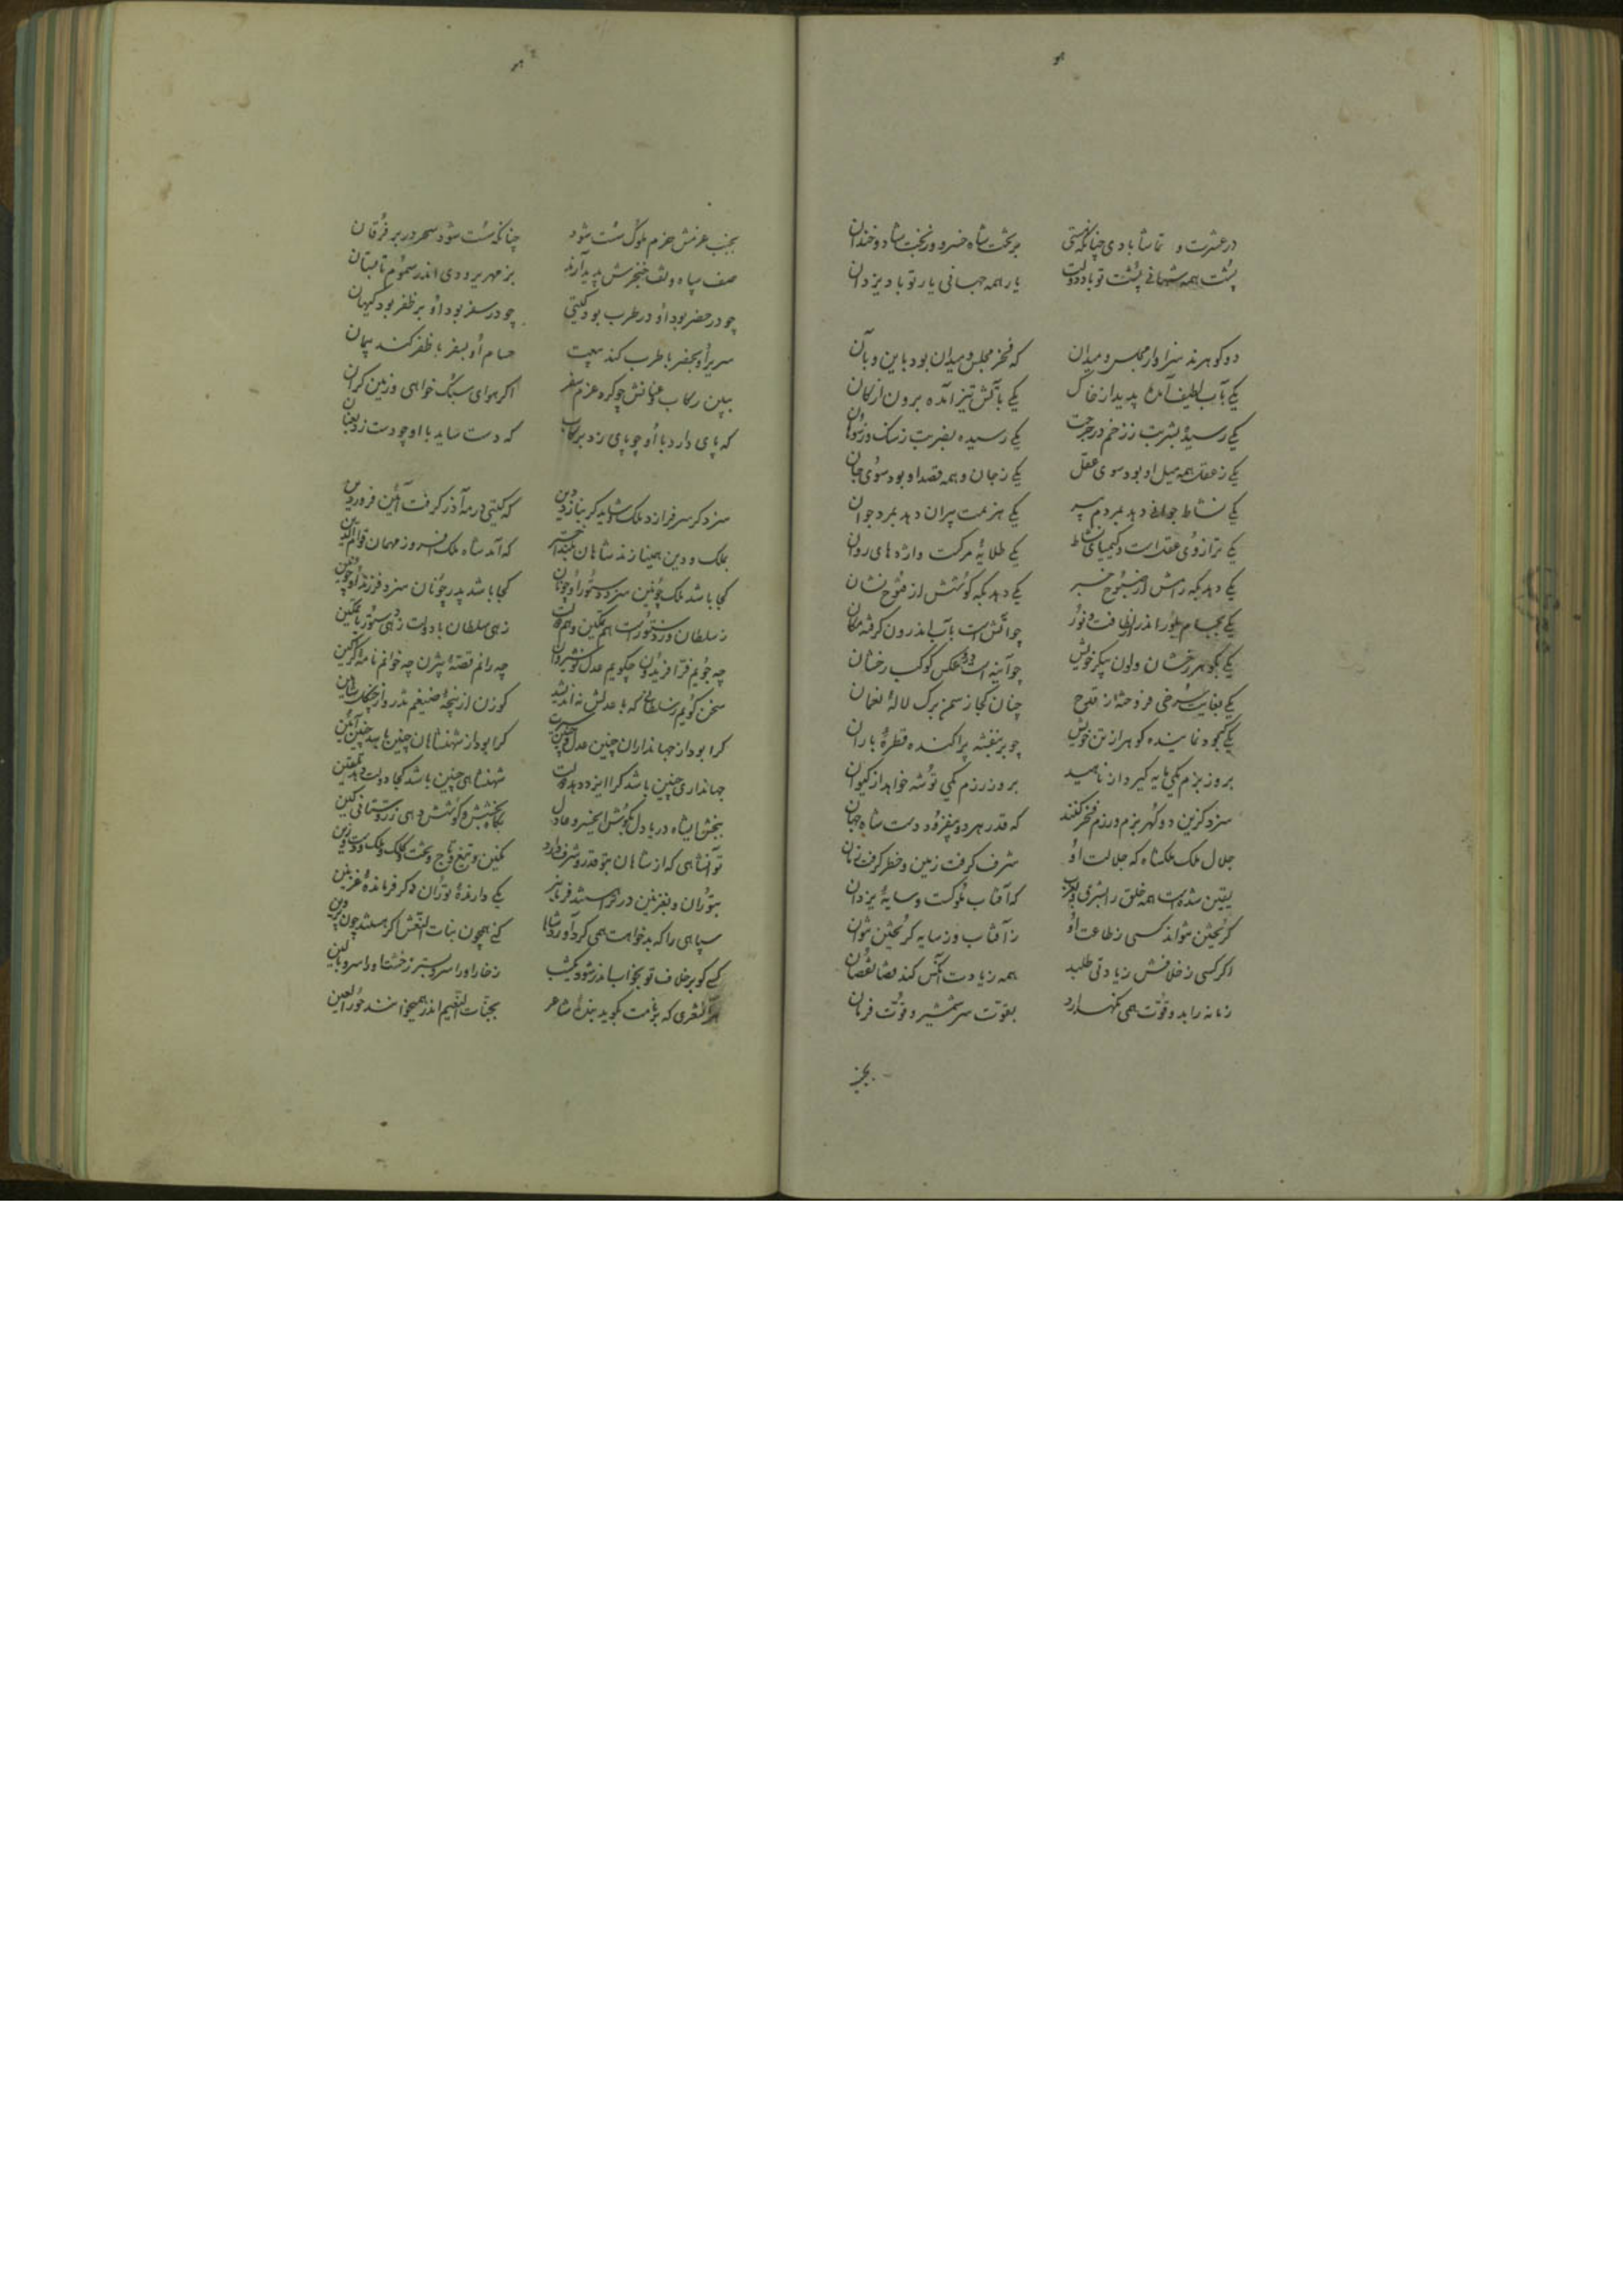 هو
در عشرت و تماشا بادی چنانکه هستی بر تخت شاه خسرو وز بخت شاد و خندان
پشت همه شهانی پشت تو باد دولت یار همه جهانی یار تو باد یزدان
دو گوهرند سزاوار مجلس و میدان که فخر مجلس و میدان بود باین و بآن
یکی بآب لطیف آمده پدید از خاک یکی بآتش تیز آمده برون از کان
یکی رسیده بشربت ز زخم در چرخشت یکی رسیده بضربت ز سنگ وز سوهان
یکی ز عقل همه میل او بود سوی عقل یکی ز جان و همه قصد او بود سوی جان
یکی نشاط جوانی دهد بمردم پیر یکی هزیمت پیران دهد بمرد جوان
یکی ترازوی عقل است و کیمیای نشاط یکی طلایه مرگست و اژدهای روان
یکی دهد بگه رامش از صبوح خبر یکی دهد بگه کوشش از فتوح نشان
یکی بجام بلور اندرون لطافت و نور چو آتش است بآب اندرون گرفته مکان
یکی بگوهر رخشان و لون پیکر خویش چو آینه است درو عکس کوکب رخشان
یکی بغایت سرخی فروخته از قدح چنان کجا ز سمن برگ لاله نعمان
یکی کبود نماینده گوهر از تن خویش چو بر بنفشه پراکنده قطره باران
بروز بزم یکی مایه گیرد از ناهید بروز رزم یکی توشه خواهد از کیوان
سزد کزین دو گهر بزم و رزم فخر کنند که قدر هر دو بیفزود دست شاه جهان
جلال ملک ملکشاه که جلالت او شرف گرفت زمین و خطر گرفت زمان
یقین شده است همه خلق را بشرق و بغرب که آفتاب ملوکست و سایه یزدان
گریختن نتواند کسی ز طاعت او ز آفتاب وز سایه گریختن نتوان
اگر کسی ز خلافش زیادتی طلبد همه زیادت آنکس کند قضا نقصان
زمانه را بدو قوت همی نگه دارد بقوت سر شمشیر و قوت فرمان
بجنب
هو
بجنب عزمش حزم ملوک سست شود چنانکه سست شود سحر در بر فرقان
صف سپاه و تف خنجرش پدید آرند بزمهریر و دی اندر سموم تابستان
چو در حضر بود او در طرب بود گیتی چو در سفر بود او بر ظفر بود گیهان
سریر او بحضر با طرب کند بیعت حسام او بسفر با ظفر کند پیمان
ببین رکاب و عنانش چو کرد عزم سفر اگر هوای سبک خواهی و زمین گران
که پای دارد با او چو پای زد برکاب که دست ساید با او چو دست زد بعنان
سزد گر سر فرازد ملک و شاید گر بنازد دین که گیتی در مه آذر گرفت آئین فروردین
بملک و دین همینازند شاهان بلند اختر که آمد شاه ملک افروز مهمان قوام الدین
کجا باشد ملک چونین سزد دستور او چونان کجا باشد پدر چونان سزد فرزند او چونین
ز سلطان وز دستورست هم تمکین و هم دولت زهی سلطان با دولت زهی دستور با تمکین
چه جویم فر افریدون چگویم عدل نوشروان چه رانم قصه بیژن چه خوانم نامه گرگین
سخن گویم ز سلطانی که با عدلش نه اندیشد گوزن از پنجه ضیغم تذرو از چنگل شاهین
کرا بود از جهانداران چنین عدل و چنین سیرت کرا بود از شهنشاهان چنین تایید چنین آئین
جهانداری چنین باشد کرا ایزد دهد دولت شهنشاهی چنین باشد کجا دولت دهد تلقین
ببخش ای شاه دریا دل بکوش ای خسرو عادل بگاه بخشش و کوشش دهی زر و ستانی کین
تو آنشاهی که از شاهان بتو قدر و شرف دارد نگین و تیغ و تاج و تخت و کلک و ملک و دست و زین
بتوران و بغزنین در تو استند فرمانبر یکی دارنده توران دگر فرمانده غزنین
سپاهی را که بدخواهت همی گرد آورد شاها کنی همچون بنات النعش اگر هستند چون پروین
کسی کو بر خلاف تو بخواب اندر شود یکشب ز خار او را سر و بستر ز خشت او را سر و بالین
هر آن شعری که بر نامت بگوید بنده شاعر بجنات النعیم اندر همیخوانند حور العین